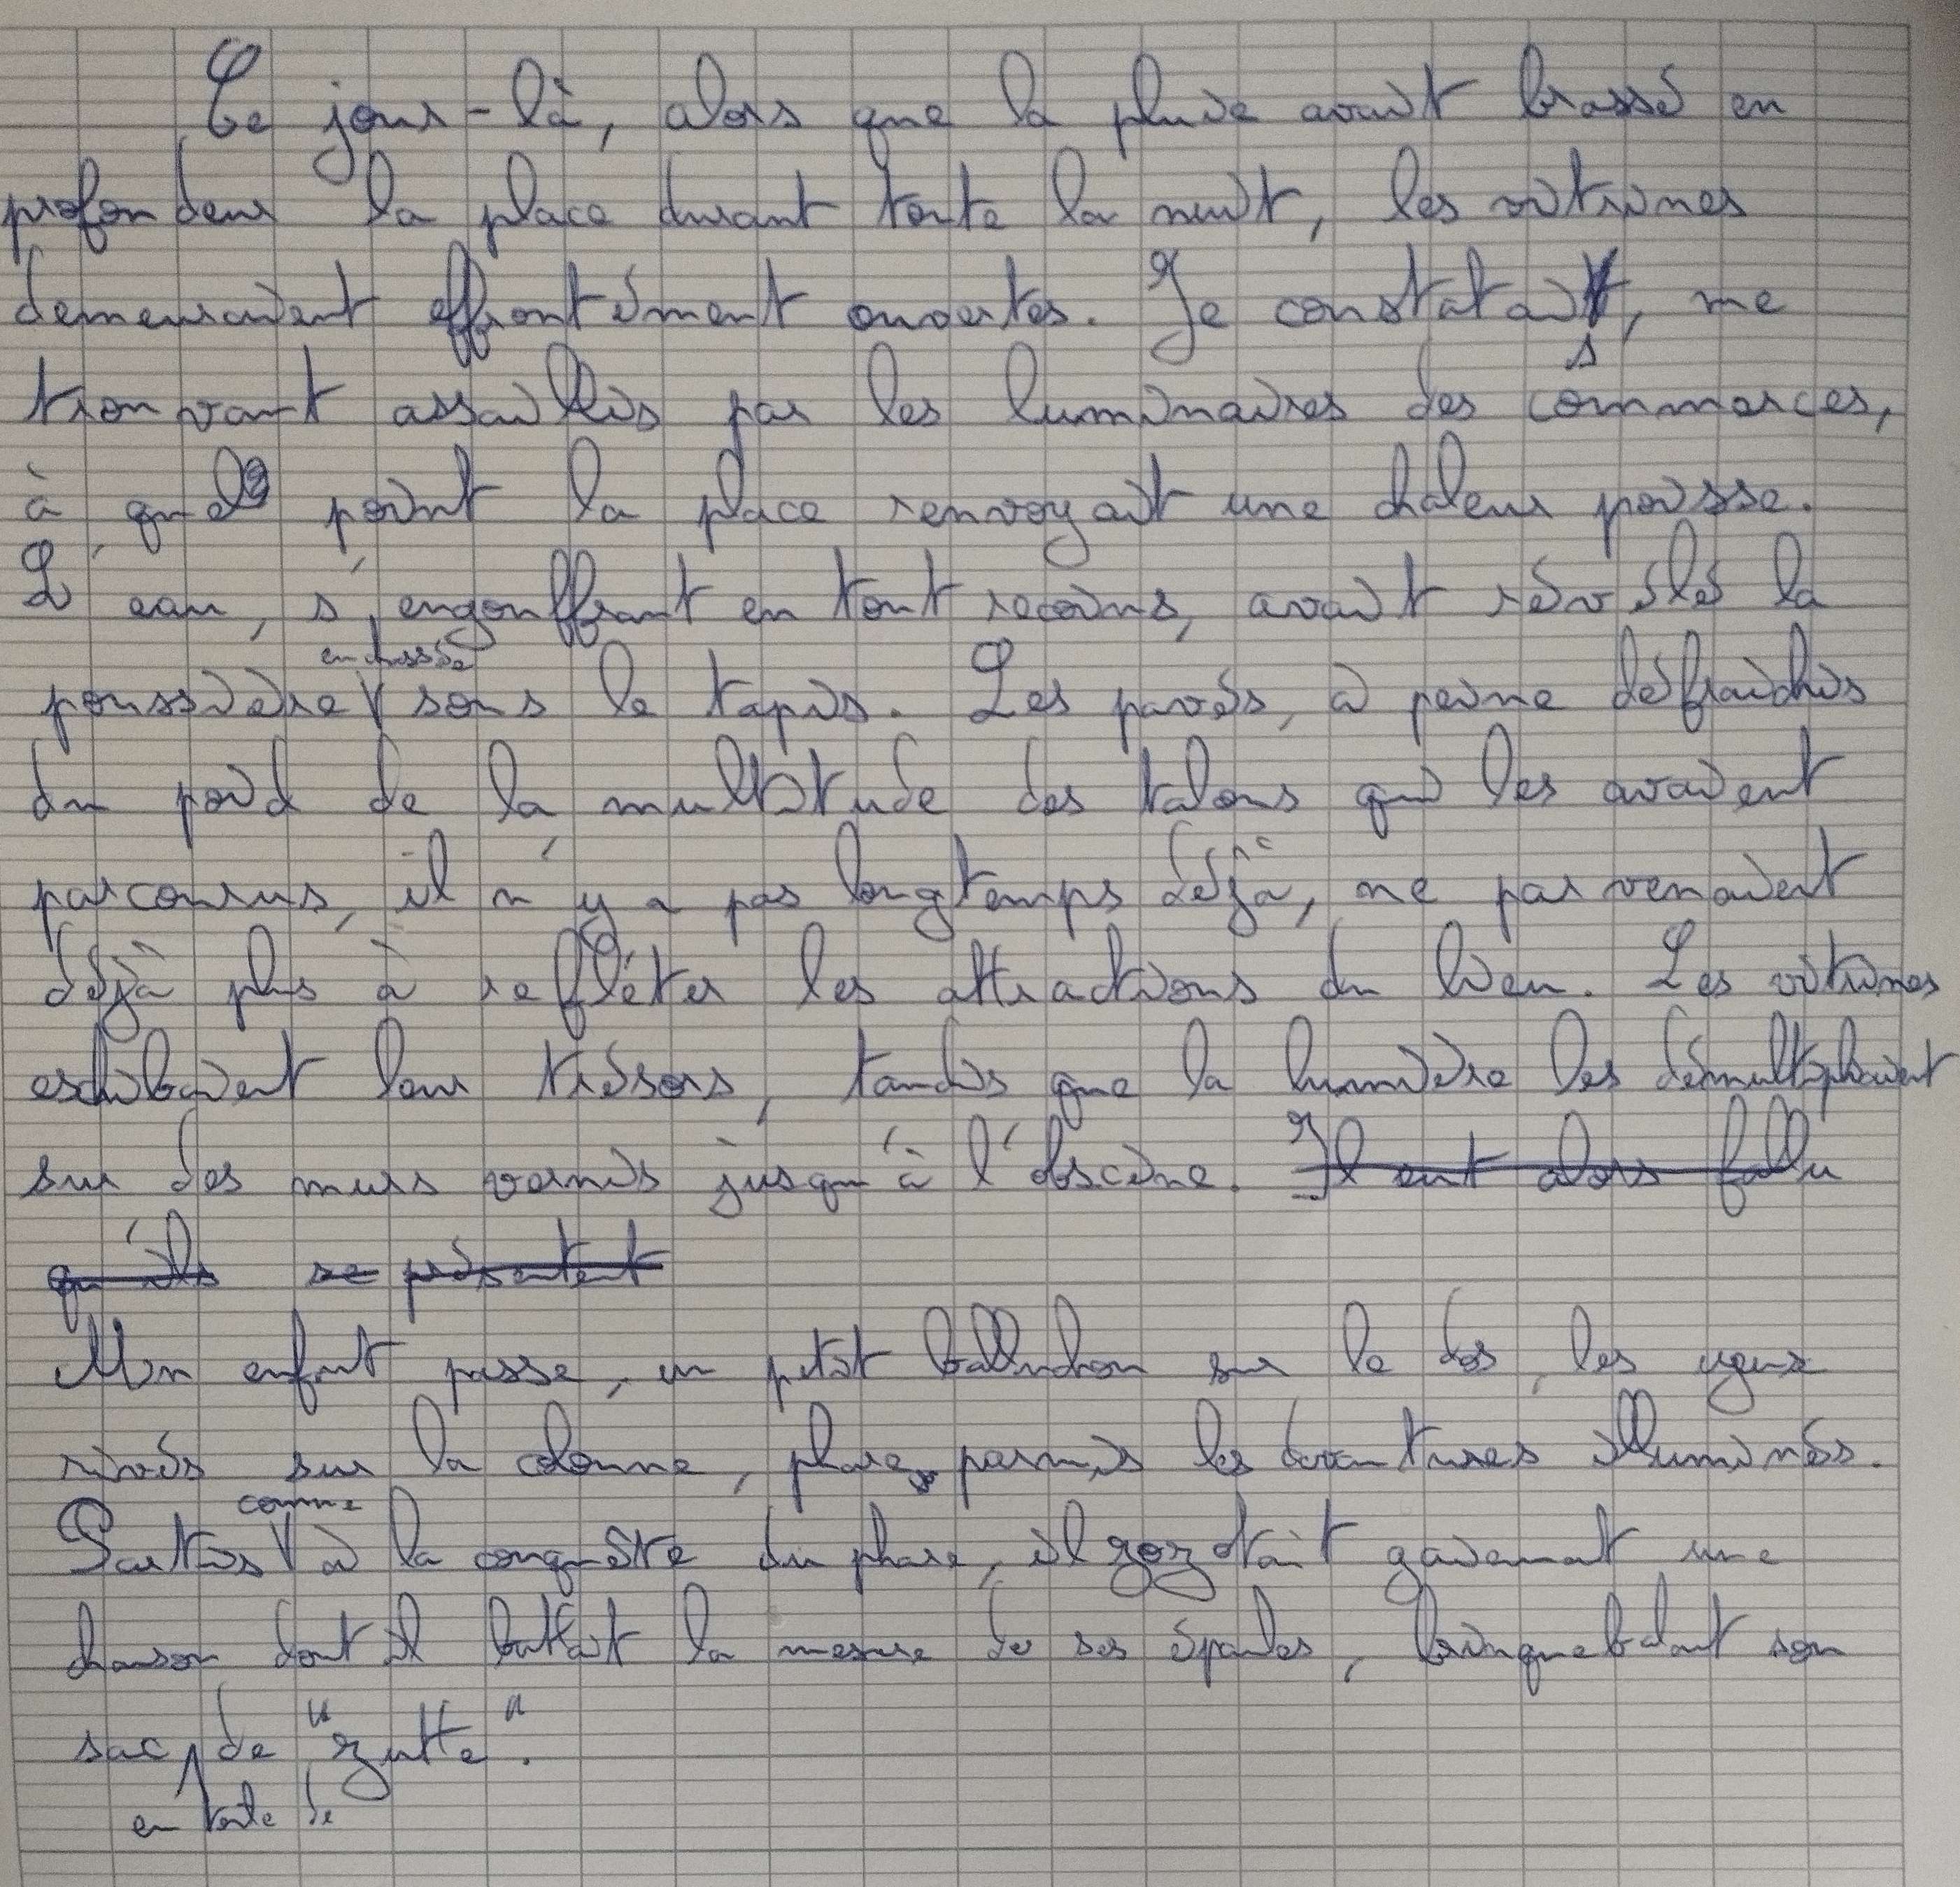 Ce jour-là, alors que la pluie avait brassé en
profondeur la place durant toute la nuit, les vitrines
demeuraient effrontément ouvertes. Je constatais, me
trouvant assaillis par les luminaires des commerces,
à quel point la place renvoyait une chaleur poisse.
L'eau, s'engouffrant en tout recoins, avait révélé la
poussière enchassée sous le tapis. Les pavés, à peine défraichis
du poid de la multitude des talons qui les avaient
parcourus, il n'y a pas longtemps déjà, ne parvenaient
déjà plus à refléter les attractions du lieu. Les vitrines
exhibaient leur trésors, tandis que la lumière les démultipliaient
sur des murs vernis jusqu'à l'obscène. Il eut alors fallu
qu'ils se présentent
Un enfant passe, un petit balluchon sur le dos, les yeux
rivés sur la colonne, phare parmis les devantures illuminés.
Partis comme à la conquête du phare, il zozotait gaiement une
chanson dont il battait la mesure de ses épaules, brinquebalant son
sac en toile de "zutte".